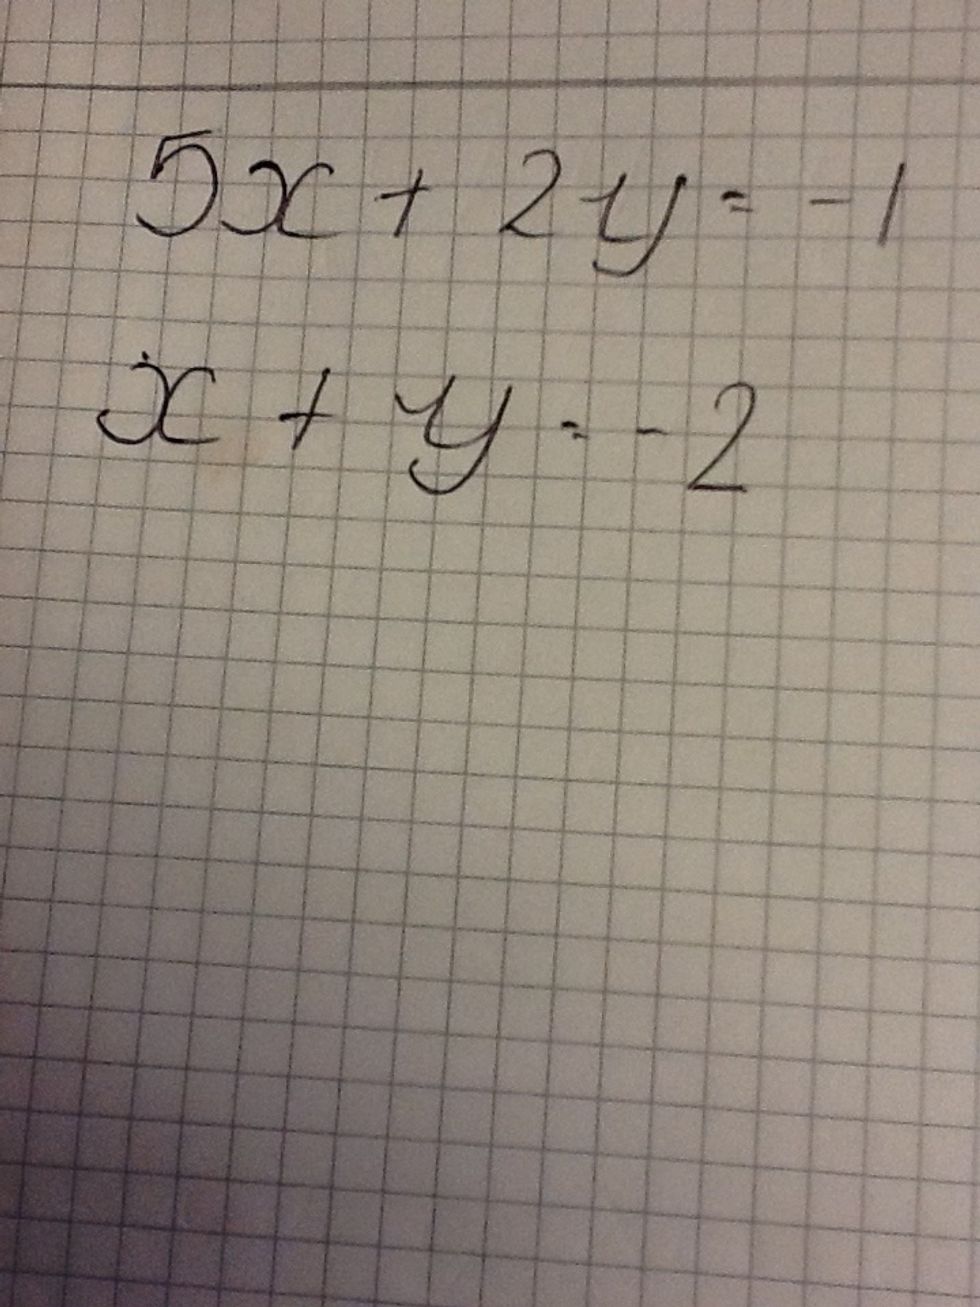 5x + 2y = -1
x + y = -2